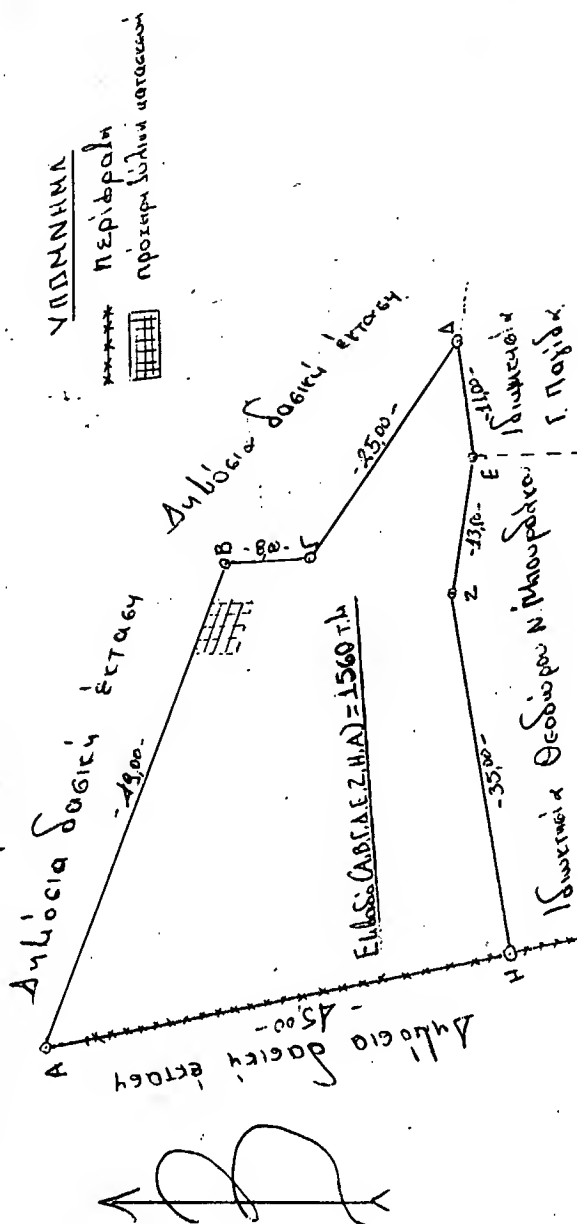 ΥΠΟΜΝΗΜΑ
περίφραξη
πρόχειρη ξύλινη κατασκευή
Δημόσια δασική έκταση
Δημόσια δασική έκταση
Δημόσια δασική έκταση
Α
-49,00-
Β
-8,00-
Γ
-25,00-
Δ
-11,00-
Ε
-13,00-
Ζ
-35,00-
Η
-45,00-
Εμβαδό (Α,Β,Γ,Δ,Ε,Ζ,Η,Α) = 1560 τ.μ
Ιδιοκτησία Θεοδώρου Ν. Μπουρδάκα
Ιδιοκτησία
Γ. Παγίδα